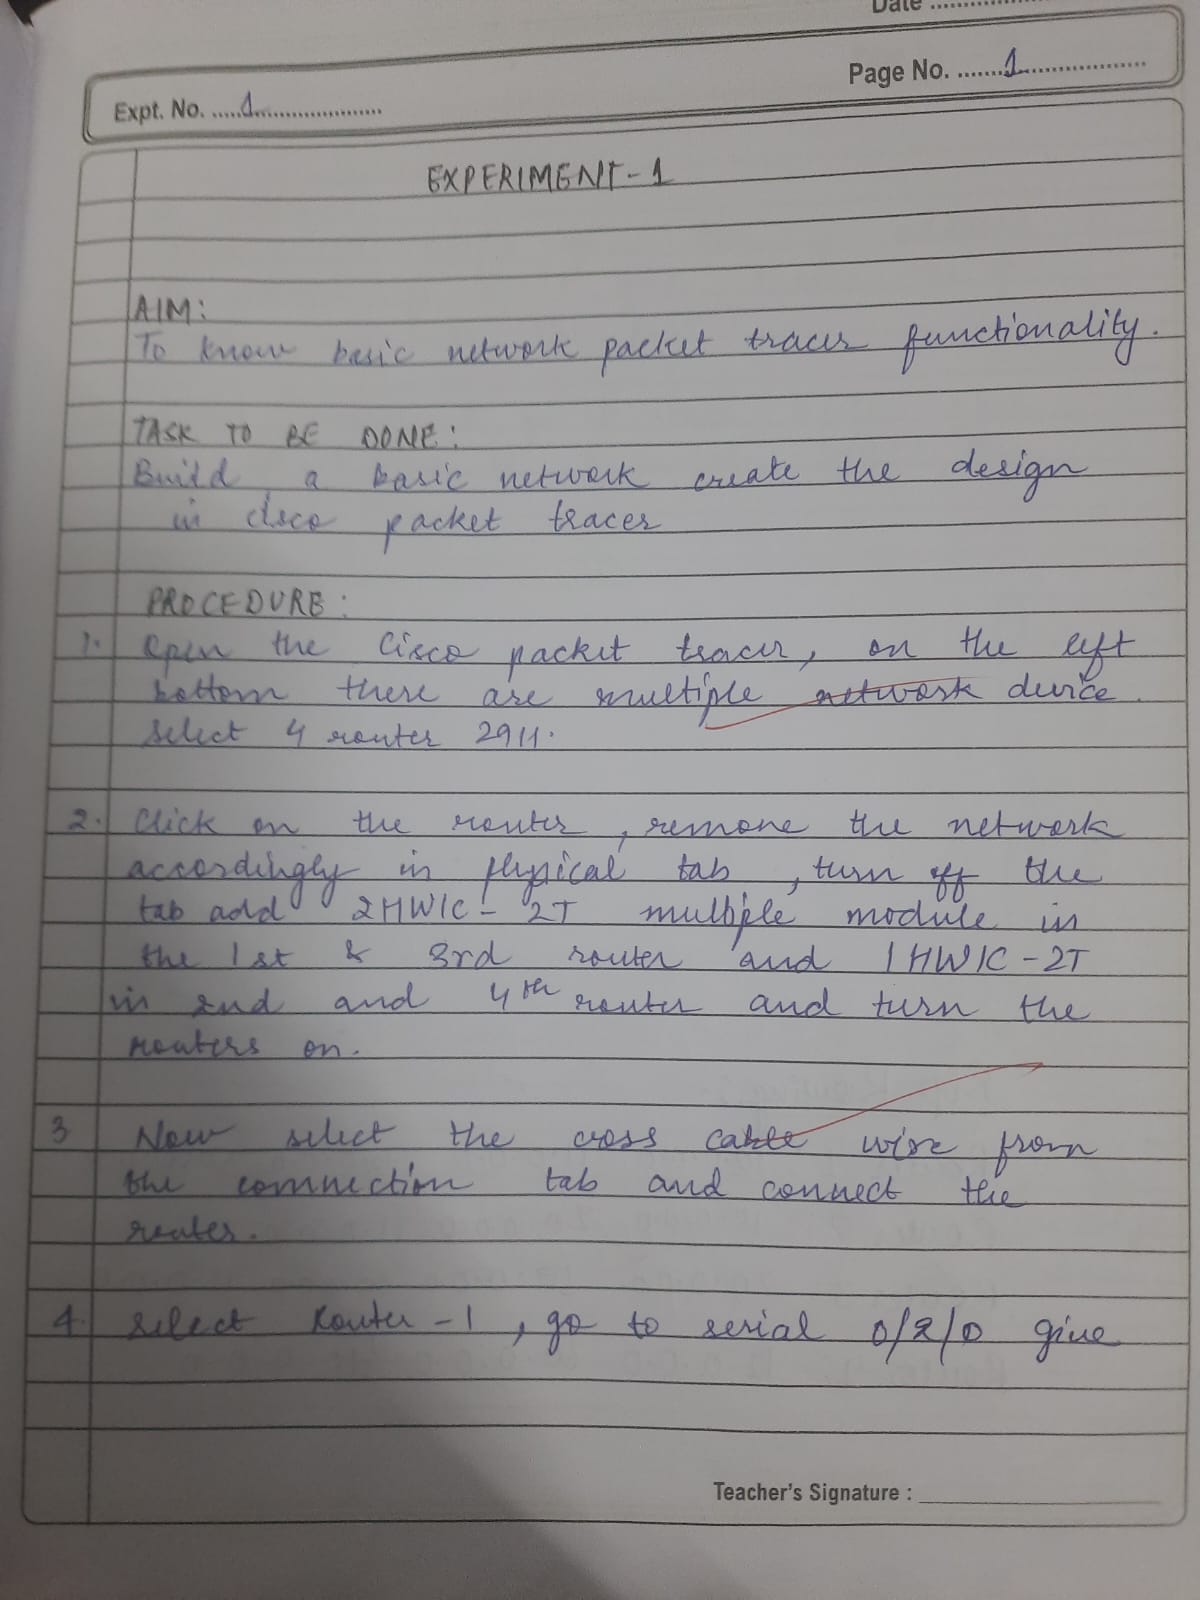 Date ........
Page No. .......1.....................
Expt. No. .....1.......................
EXPERIMENT-1
AIM:
To know basic network packet tracer functionality.
TASK TO BE DONE:
Build a basic network create the design
in cisco packet tracer
PROCEDURE:
1. Open the Cisco packet tracer, on the left
bottom there are multiple network device.
select 4 router 2911.
2. Click on the router, remone the network
accordingly in physical tab, turn off the
tab add 2HWIC-2T multiple module in
the 1st & 3rd router and 1HWIC-2T
in 2nd and 4th router and turn the
routers on.
3 Now select the cross cable wire from
the connection tab and connect the
router.
4. select Router-1, go to serial 0/2/0 give
Teacher's Signature : ____________________